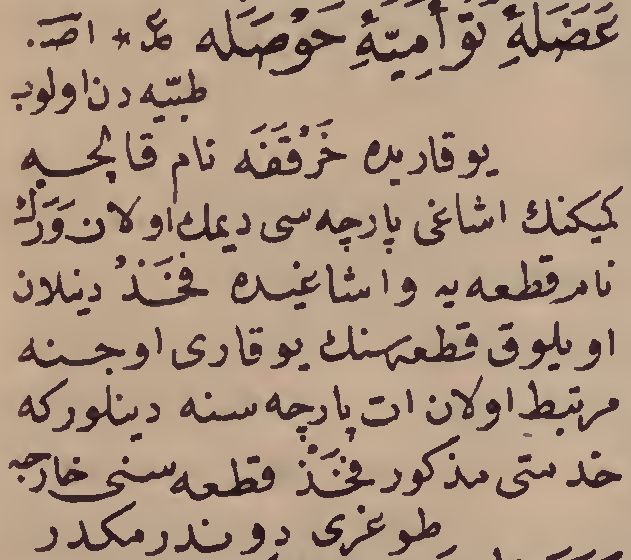 عَضَلَهِٔ تَوْأَمِيَّهِٔ حَوْصَلَه * اصـ.
طبيّه دن اولوب
يوقاريده خَرْقَفَه نام قالچه
كميكنك اشاغى پارچه سى ديمك اولان وَرَك
نام قطعه يه واشاغيده فَخَذْ دينلان
اويلوق قطعه سنك يوقارى اوجنه
مرتبط اولان ات پارچه سنه دينلوركه
خدمتى مذكور فَخَذْ قطعه سنى خارجه
طوغرى دوندرمكدر